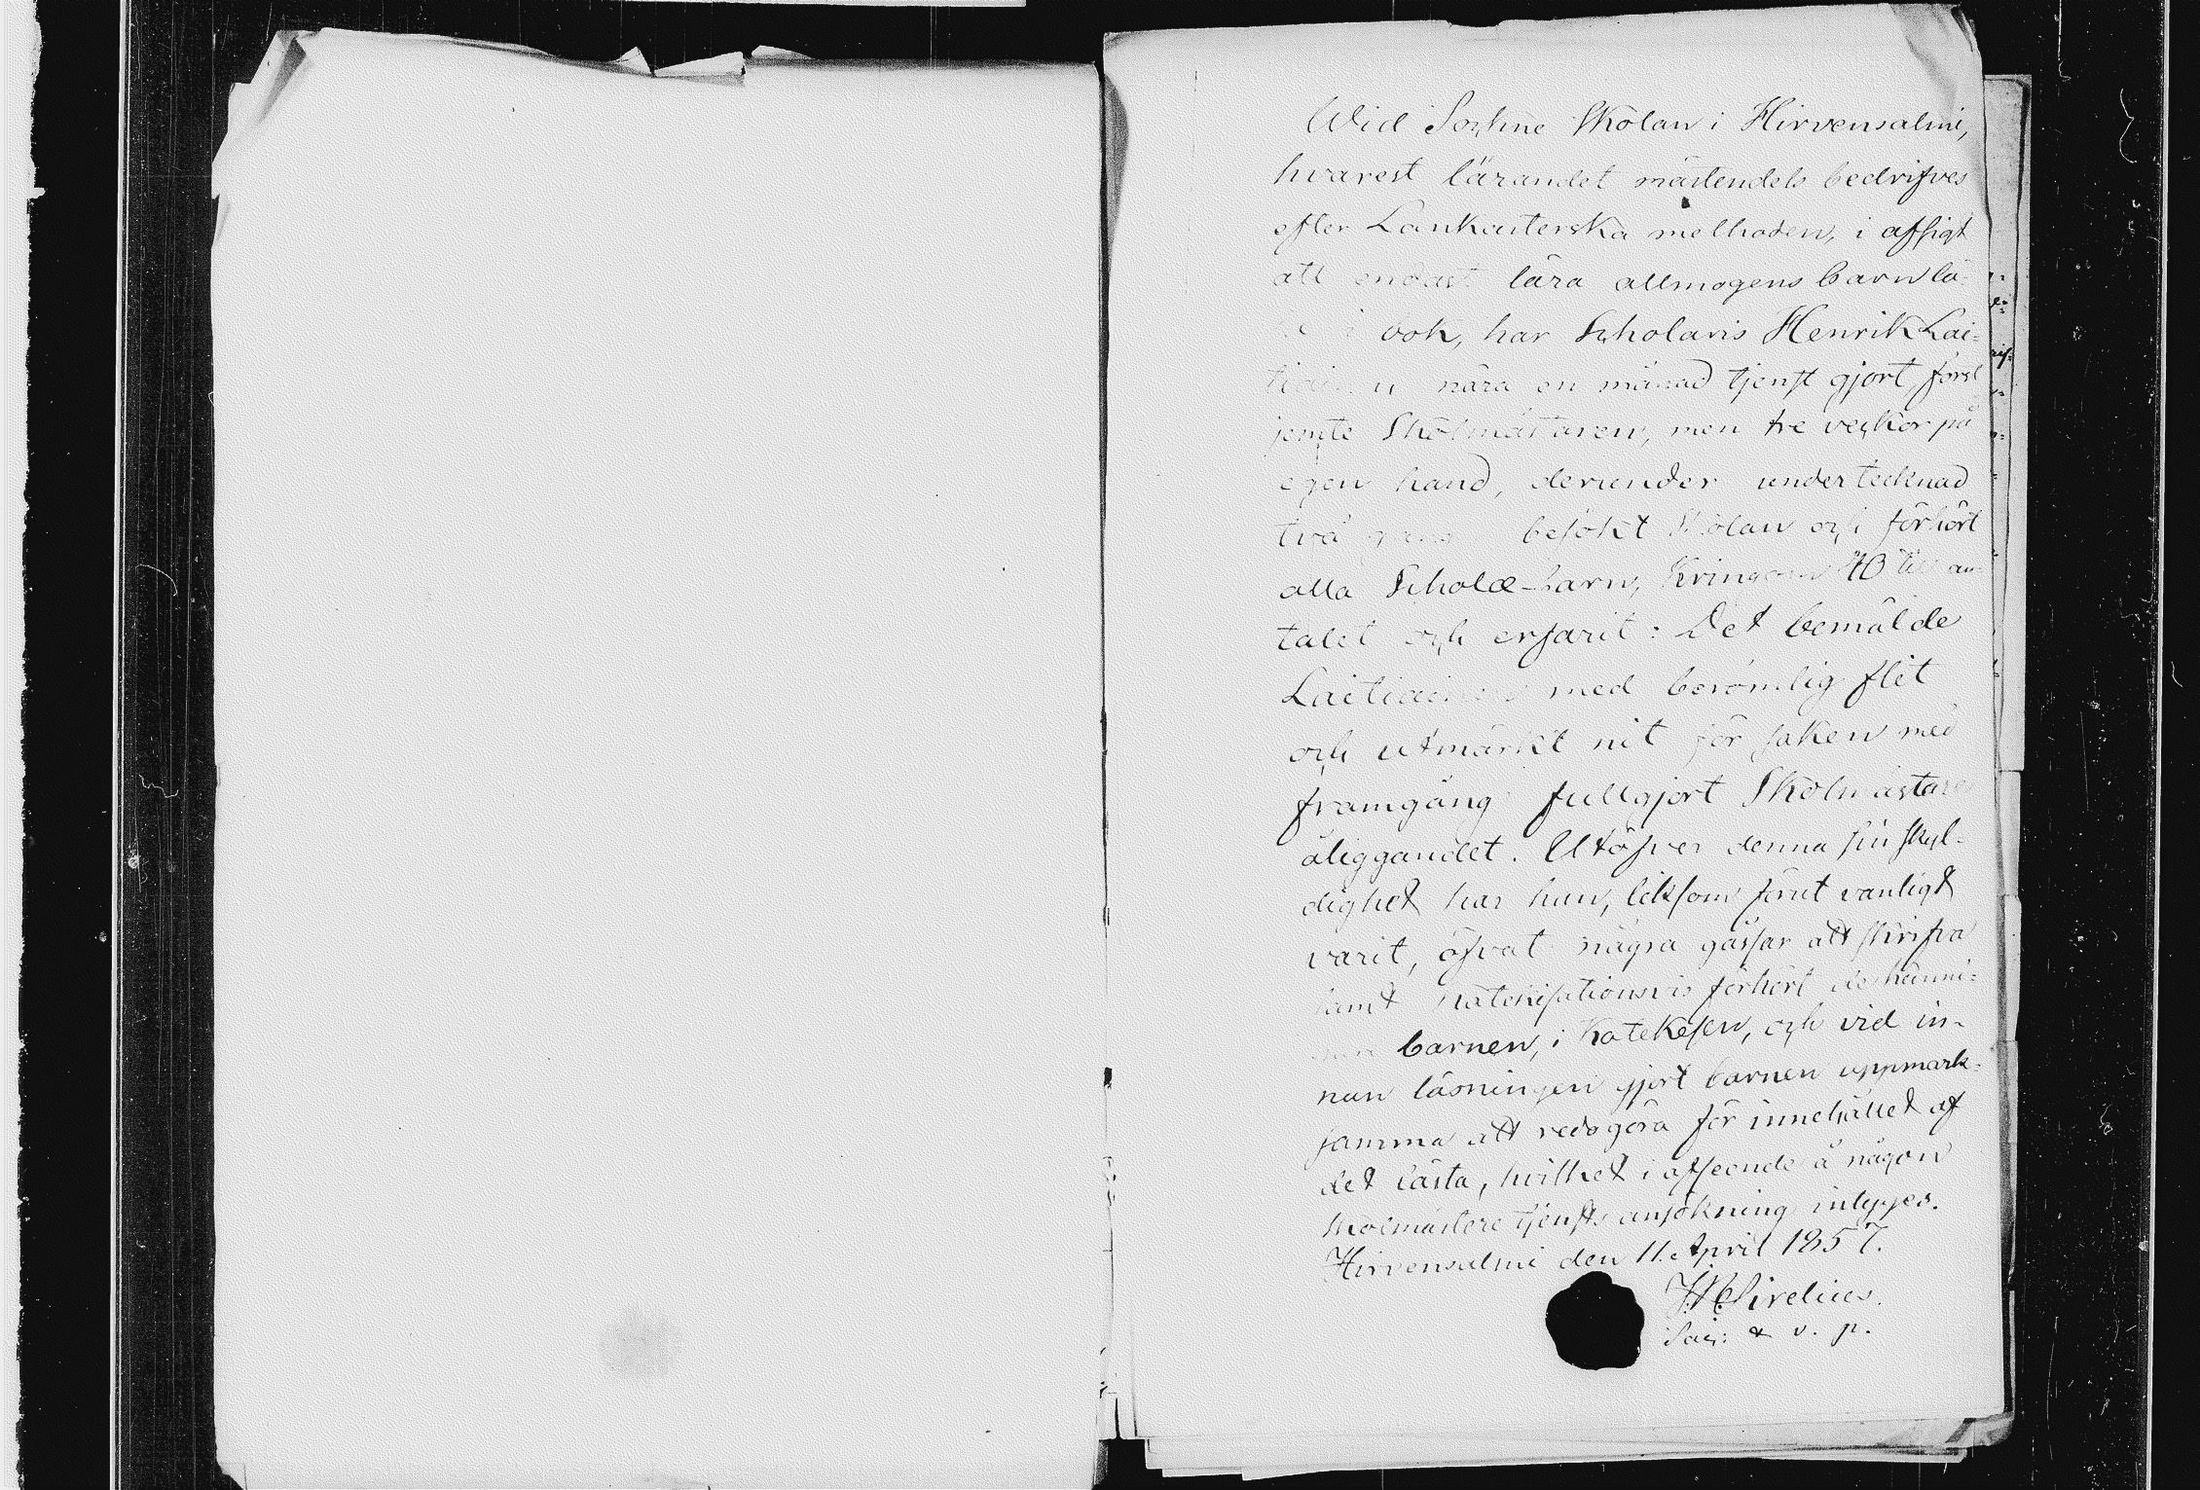 Wid Sockne Skolan i Hirvensalmi,
hvarest lärandet mästendels bedrifves
efter Lankasterska methoden, i afsigt
att endast lära allmogens barn lä-
i bok, har Scholaris Henrik Lai=
nära en månad tjenst gjort, först
jemte Skolmästaren, men tre veckor på
egen hand, derunder undertecknad
två besökt Skolan och förhört
alla Scholæ-barn, kringom 40 till an-
talet och erfarit: Det bemälde
med berömlig flit
och utmärkt nit för saken med
framgång fullgjort Skolmästare
åliggandet. Utöfver denna sin skyl-
dighet har han, liksom förut vanligt
varit, öfvat några gossar att skrifva
samt katekisationsvis förhört de
barnen, i Katekesen, och vid in-
nan läsningen gjort barnen uppmärk=
samma att redogöra för innehållet af
det lästa, hvilket i afseende å någon
Skolmästare tjensts ansökning intygas.
Hirvensalmi den 11. April 1857.
Sirelius.
Sac: & v. p.